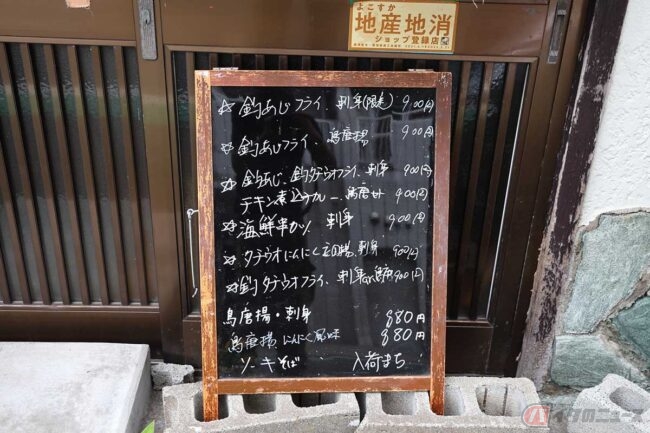 よこすか
地産地消
ショップ登録店
☆ 釣あじフライ、刺身(限定) 900円
☆ 釣あじフライ、鳥唐揚 900円
☆ 釣あじ、釣タチウオフライ、刺身 900円
チキン煮込カレー、鳥唐付 900円
☆ 海鮮串カツ 刺身 900円
☆ タチウオにんにく 揚、刺身 900円
☆ 釣タチウオフライ、刺身or鳥唐 900円
鳥唐揚・刺身 880円
鳥唐揚 にんにく風味 880円
ソーキそば 入荷まち
バイクのニュース